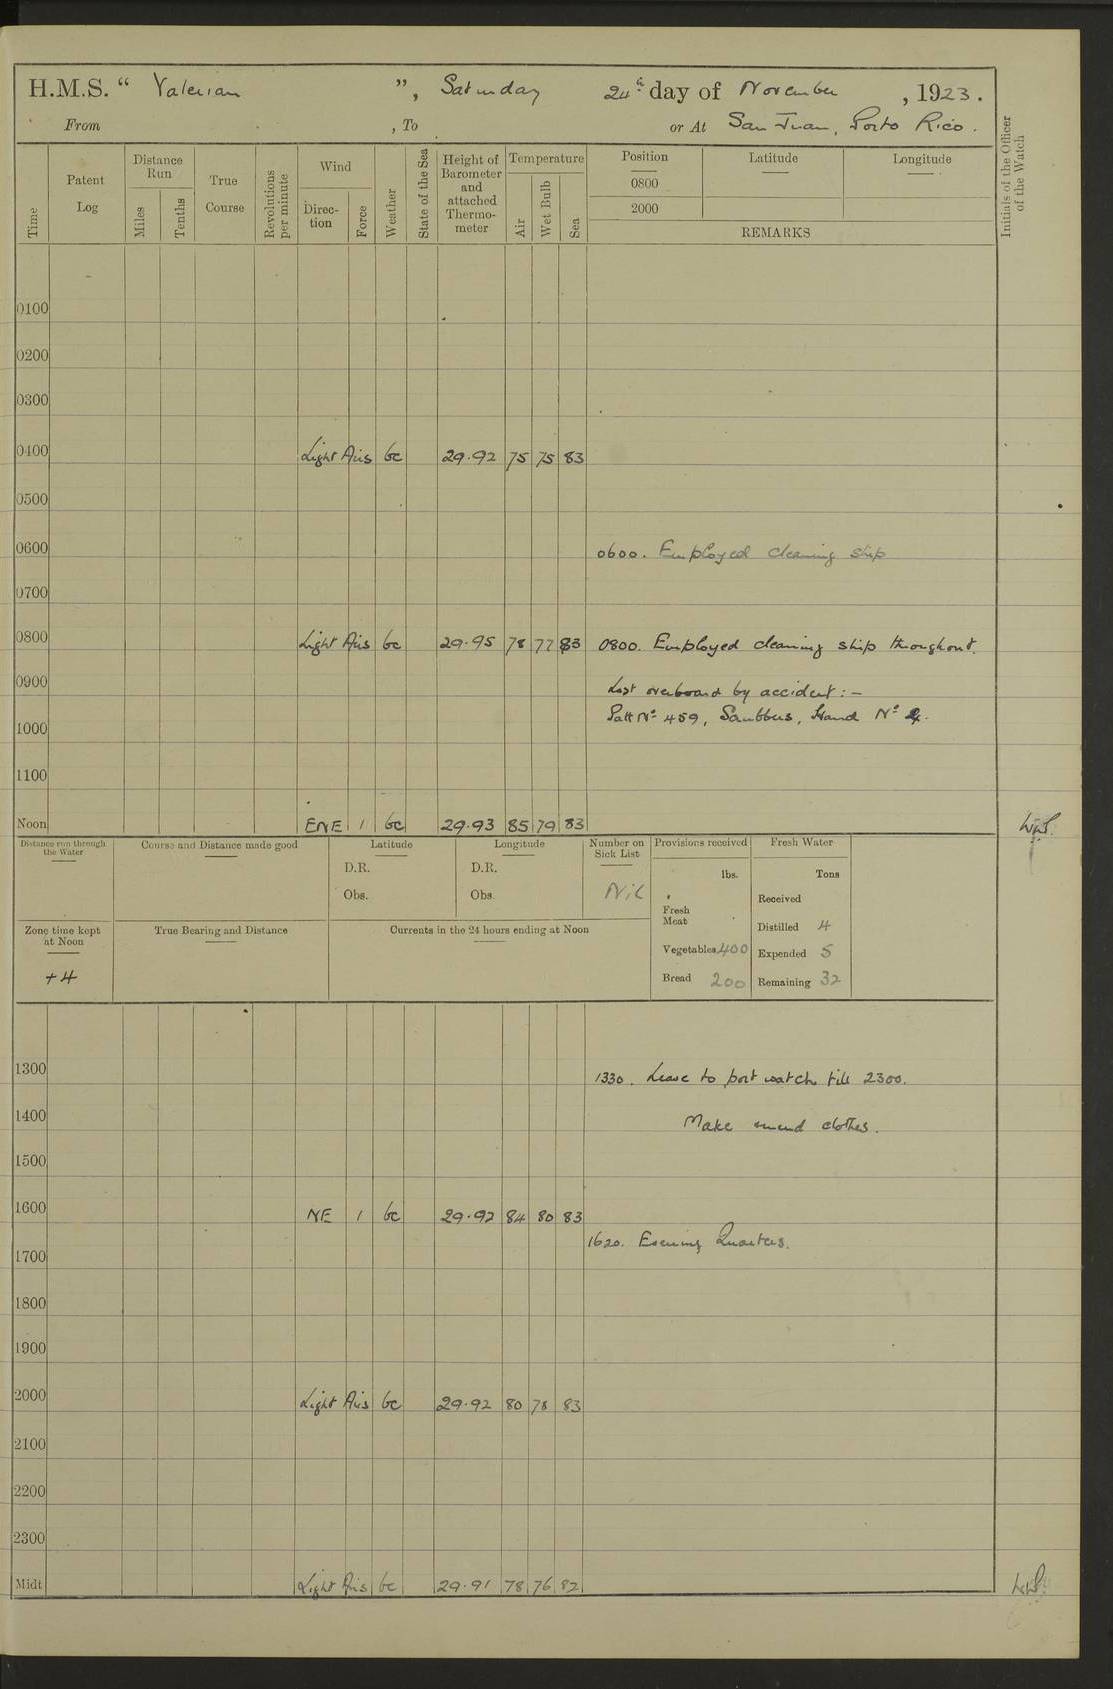 H.M.S. “ Valerian ”, Saturday 24th day of November, 1923.
From , To or At San Juan, Porto Rico.
Time
Patent Log
Distance Run
Miles
Tenths
True Course
Revolutions per minute
Wind
Direction
Force
Weather
State of the Sea
Height of Barometer and attached Thermometer
Temperature
Air
Wet Bulb
Sea
Position
0800
2000
Latitude
Longitude
REMARKS
Initials of the Officer of the Watch
0100
0200
0300
0400 Light Airs bc 29.92 75 75 83
0500
0600 0600. Employed cleaning ship
0700
0800 Light Airs bc 29.95 78 77 83 0800. Employed cleaning ship throughout.
0900 Lost overboard by accident :-
Patt No 459, Scrubbers, Hand No
1000
1100
Noon ENE 1 bc 29.93 85 79 83
Distance run through the Water
Course and Distance made good
Latitude
D.R.
Obs.
Longitude
D.R.
Obs.
Number on Sick List
Nil
Provisions received
lbs.
Fresh Meat
Vegetables 400
Bread 200
Fresh Water
Tons
Received
Distilled 4
Expended 5
Remaining 32
Zone time kept at Noon
+4
True Bearing and Distance
Currents in the 24 hours ending at Noon
1300 1330. Leave to port watch till 2300.
1400 Make mend clothes.
1500
1600 NE 1 bc 29.92 84 80 83
1620. Evening Quarters.
1700
1800
1900
2000 Light Airs bc 29.92 80 78 83
2100
2200
2300
Midt Light Airs bc 29.91 78 76 82